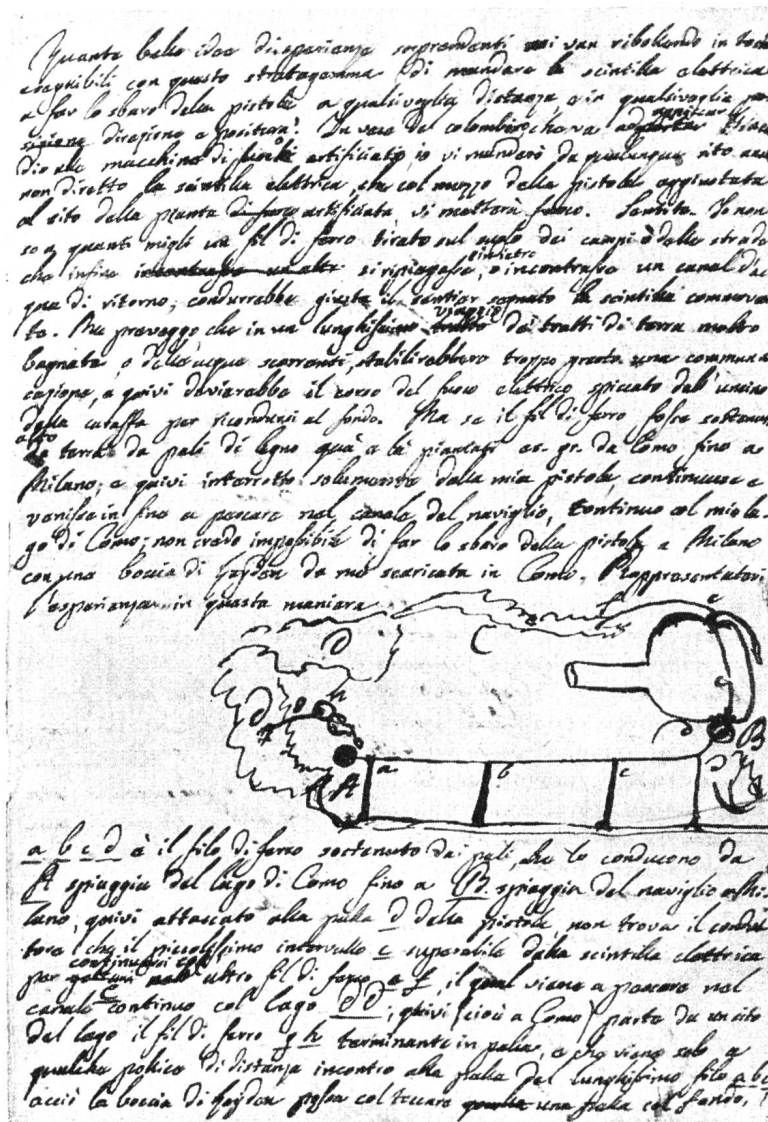 Quante belle idee di esperienze sorprendenti mi van ribollendo in testa
eseguibili con questo stratagemma di mandare la scintilla elettrica
a far lo sbaro della pistola a qualsivoglia distanza e in qualsivoglia po
sizione direzione e positura! In vece del colombino che va ad appiccar l'incen
dio alle macchine di fuochi artificiato, io vi manderò da qualunque sito anche
non diretto la scintilla elettrica, che col mezzo della pistola aggiustata
al sito della pianta di fuoco artificiata, vi metterà fuoco. Sentite. Io non
so a quanti miglia un fil di ferro tirato sul suolo dei campi o delle strade
che infine incontrasse un altr si ripiegasse indietro, o incontrasse un canal d'ac
qua di ritorno, condurrebbe giusta il sentier segnato la scintilla commoven
te. Ma preveggo che in un lunghissimo tratto viaggio dei tratti di terra molto
bagnata, o delle acque scorrenti, stabilirebbero troppo presto una comuni
cazione, e quivi devierebbe il corso del fuoco elettrico spiccato dall'uncino
della caraffa per ricondursi al fondo. Ma se il fil di ferro fosse sostenuto
alto da terra da pali di legno quà e là piantati ex. gr. da Como fino a
Milano; e quivi interrotto solamente dalla mia pistola, continuasse e
venisse in fine a pescare nel canale del naviglio, continuo col mio la-
go di Como; non credo impossibile di far lo sbaro della pistola a Milano
con una boccia di Leyden da me scaricata in Como. Rappresentatevi
l'esperienza in questa maniera
C
e
c
D
D
h
A
a
b
c
B
a b c d è il filo di ferro sostenuto dai pali, che lo conducono da
A spiaggia del lago di Como fino a B spiaggia del naviglio a Mi-
lano, quivi attaccato alla palla d della pistola, non trova il condut
tore che il piccolissimo intervallo c superabile dalla scintilla elettrica
per continuarsi coll' altro fil di ferro e f, il qual viene a pescare nel
canale C continuo col lago D D; quivi (cioè a Como) parte da un sito
del lago il fil di ferro g h terminante in palla, e che viene solo a
qualche pollice di distanza incontro alla palla del lunghissimo filo a b c
acciò la boccia di Leyden possa col toccare una palla col fondo,